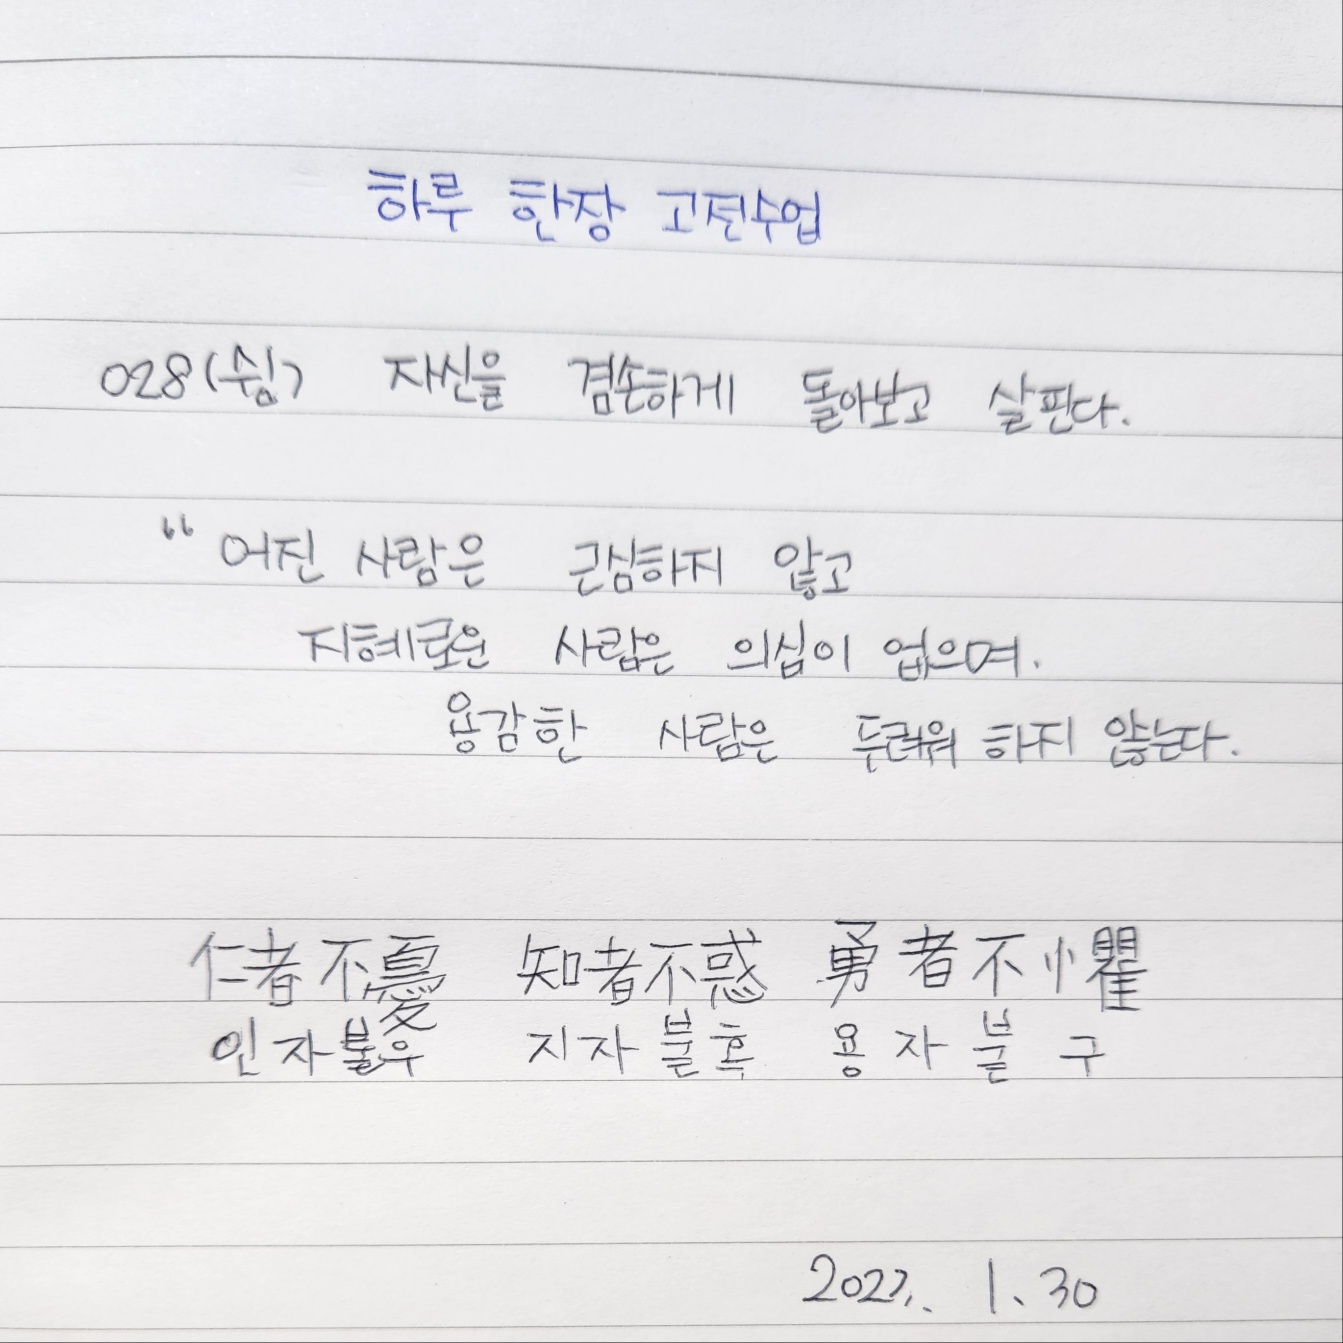 하루 한장 고전수업
028(쉼) 자신을 겸손하게 돌아보고 살핀다.
“어진 사람은 근심하지 않고
지혜로운 사람은 의심이 없으며.
용감한 사람은 두려워 하지 않는다.
仁者不憂 知者不惑 勇者不懼
인자불우 지자불혹 용자불구
1.30